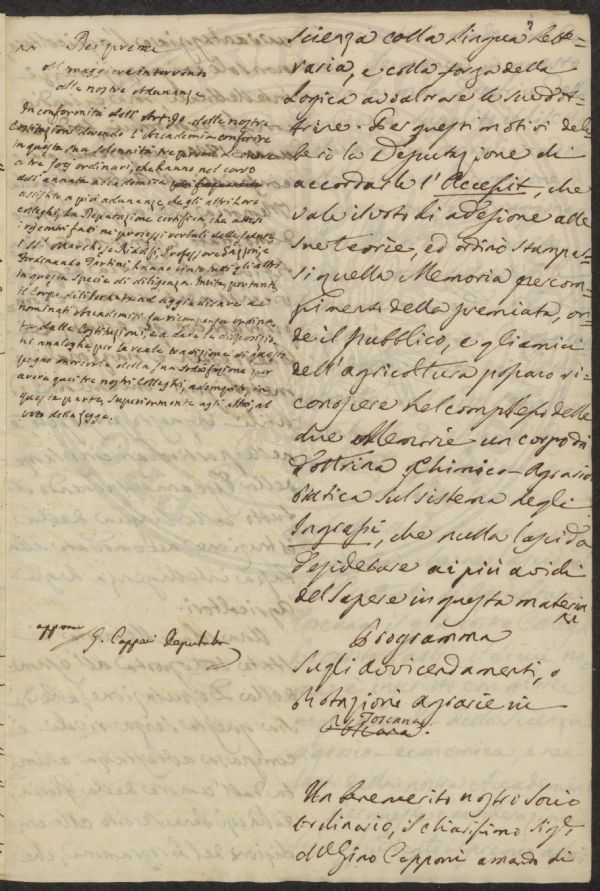 Dei premi
al maggiore intervento
alle nostre adunanze.
In conformità dell' Art. 30 delle nostre
Costituzioni dovendo l'Accademia conferire
in questa sua solennità tre premi di onore
a tre Soci ordinari, che hanno nel corso
dell'annata accademica
assistito a più adunanze, degli altri loro
colleghi, la Deputazione certifica, che attesi
i riscontri fatti ne' processi verbali delle Sedute
i SS.i Marchese Ridolfi, Professore Gazzeri, e
Ferdinando Tartini, hanno vinto tutti gli altri
in questa specie di diligenza. Invita pertanto
il Corpo deliberante ad aggiudicare ai
nominati Accademici la ricompensa ordina-
ta dalle Costituzioni, e a dare le disposizio-
ni analoghe per la reale tradizione di questo
pegno onorevole della sua soddisfazione per
avere quei tre nostri Colleghi, adempito, in
questa parte, superiormente agli altri, al
voto della Legge.
G. Capponi Deputato
scienza colla lingua lette-
raria, e colla forza della
Logica avvalorare le sue dot-
trine. Per questi motivi deli-
berò la Deputazione di
accordarle l'Accessit, che
vale il voto di adesione alle
sue teorie, ed ordinò stampas-
si quella Memoria per com-
pimento della premiata, on-
de il pubblico, e gli amici
dell'agricoltura possano ri-
conoscere nel complesso delle
due Memorie un corpo di
dottrina Chimico-Agrario
pratica sul sistema degli
Ingrassi, che nulla lascida
desiderare ai più avidi
del sapere in questa materia
Programma
sugli avvicendamenti, o
Rotazioni agrarie in
Toscana.
Un benemerito nostro socio
ordinario, il chiarissimo Sig.r
M. Gino Capponi amando di